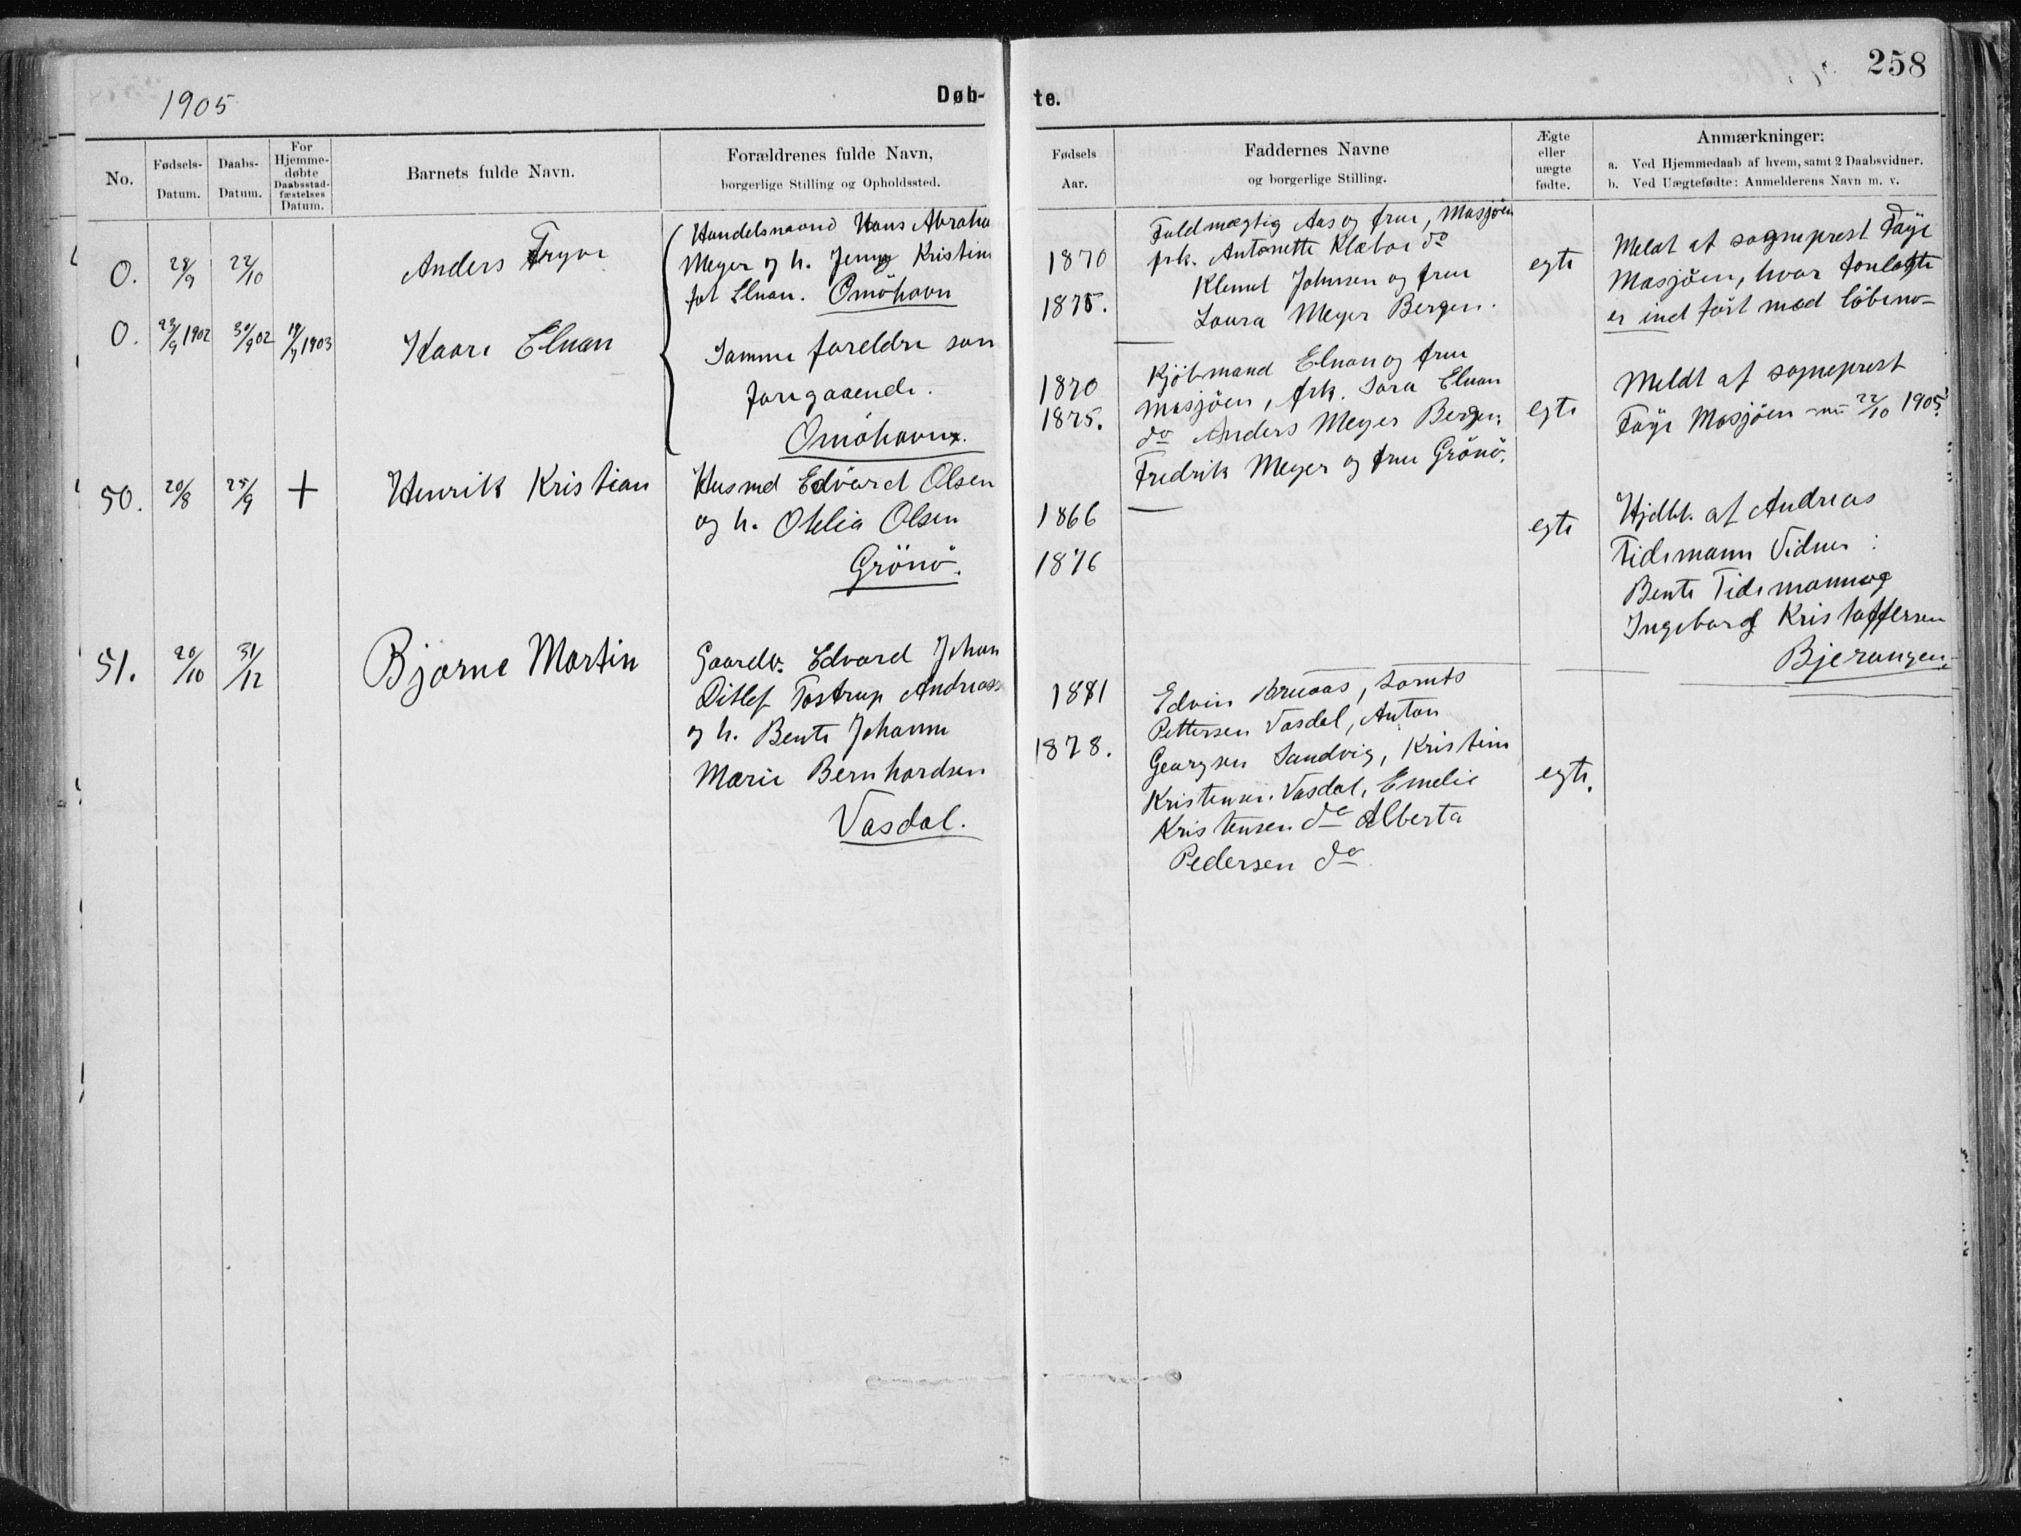 258
1905
Døb-
te.
No.
Fødsels-
Datum.
Daabs-
Datum.
For
Hjemme-
døbte
Daabsstad-
fæstelses
Datum.
Barnets fulde Navn.
Forældrenes fulde Navn,
borgerlige Stilling og Opholdssted.
Fødsels
Aar.
Faddernes Navne
og borgerlige Stilling.
Ægte
eller
uægte
fødte.
Anmærkninger:
a. Ved Hjemmedaab af hvem, samt 2 Daabsvidner.
b. Ved Uægtefødte: Anmelderens Navn m. v.
0.
28/9
22/10
Anders Trygve
Handelsmand Hans Abraha
Meyer og h. Jenny Kristine
føt Elnan. Omöhavn
1870
1875.
Fuldmægtig Aas og frue, Mosjøen
frk. Antonette Klæboe do
Klemet Johnsen og frue
Laura Meyer Bergen.
egte
Meldt af sogneprest Faye
Mosjöen, hvor
er ind fört med löbeno
0.
23/9 1902
30/9 02
19/7 1903
Kaare Elnan
Samme foreldre som
foregaaende.
Omöhavn.
1870
1875.
Kjöbmand Elnan og frue
Mosjöen, frk. Sara Elnan
do Anders Meyer Bergen,
Fredrik Meyer og frue Grönö.
egte
Meldt af sogneprest
Faye Mosjöen 22/10 1905.
50.
20/8
25/9
+
Henrik Kristian
Husmd Edvard Olsen
og h. Otelia Olsen
Grönö.
1866
1876
—
egte
Hjdbt. af Andreas
Tidemann Vidner:
Bente Tidemann og
Ingeborg Kristoffersen
Bjerangen
51.
20/10
31/12
Bjarne Martin
Gaardbr. Edvard Johan
Ditlef Tostrup Andreass
og h. Bente Johanne
Marie Bernhardsen
Vasdal.
1881
1878.
Edvin Bruaas, Samts
Pettersen Vasdal, Anton
Georgsen Sandvig, Kristine
Kristensen Vasdal, Emelie
Kristensen do Alberta
Pedersen do
egte.